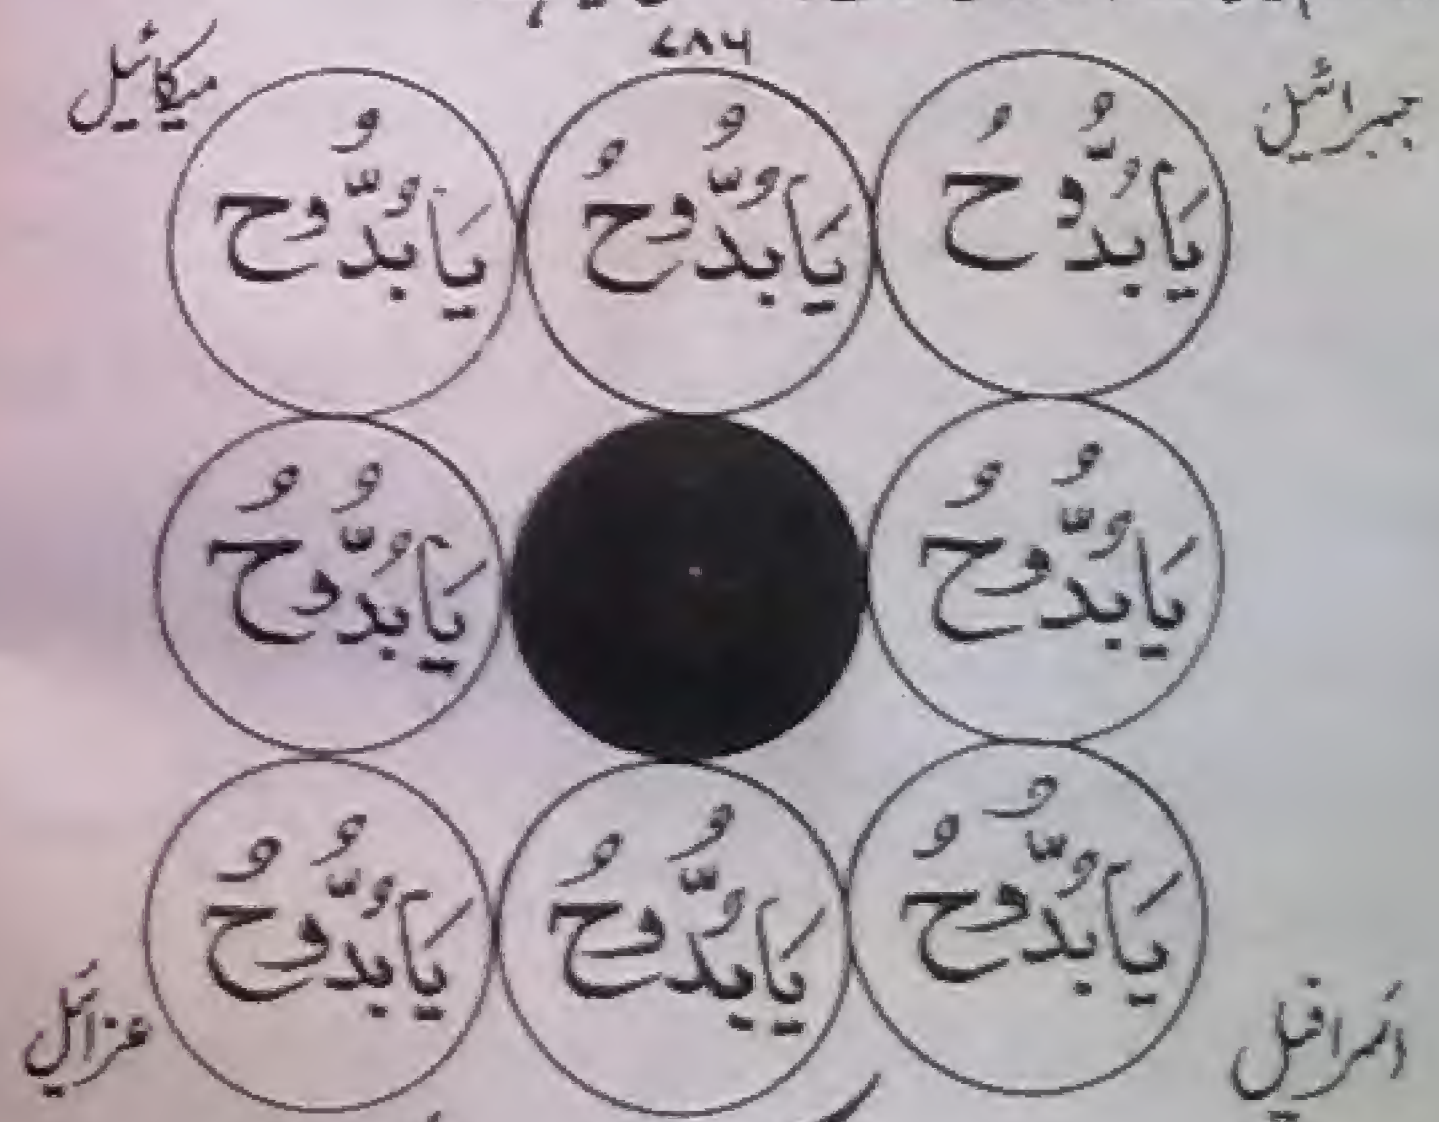 ۷۸۶
جبرائیل
میکائیل
یَا بُدُّوحُ
یَا بُدُّوحُ
یَا بُدُّوح
یَا بُدُّوحُ
یَا بُدُّوحُ
یَا بُدُّوحُ
یَا یُدُّوحُ
یَا بُدُّوحُ
اسرافیل
عزرائیل